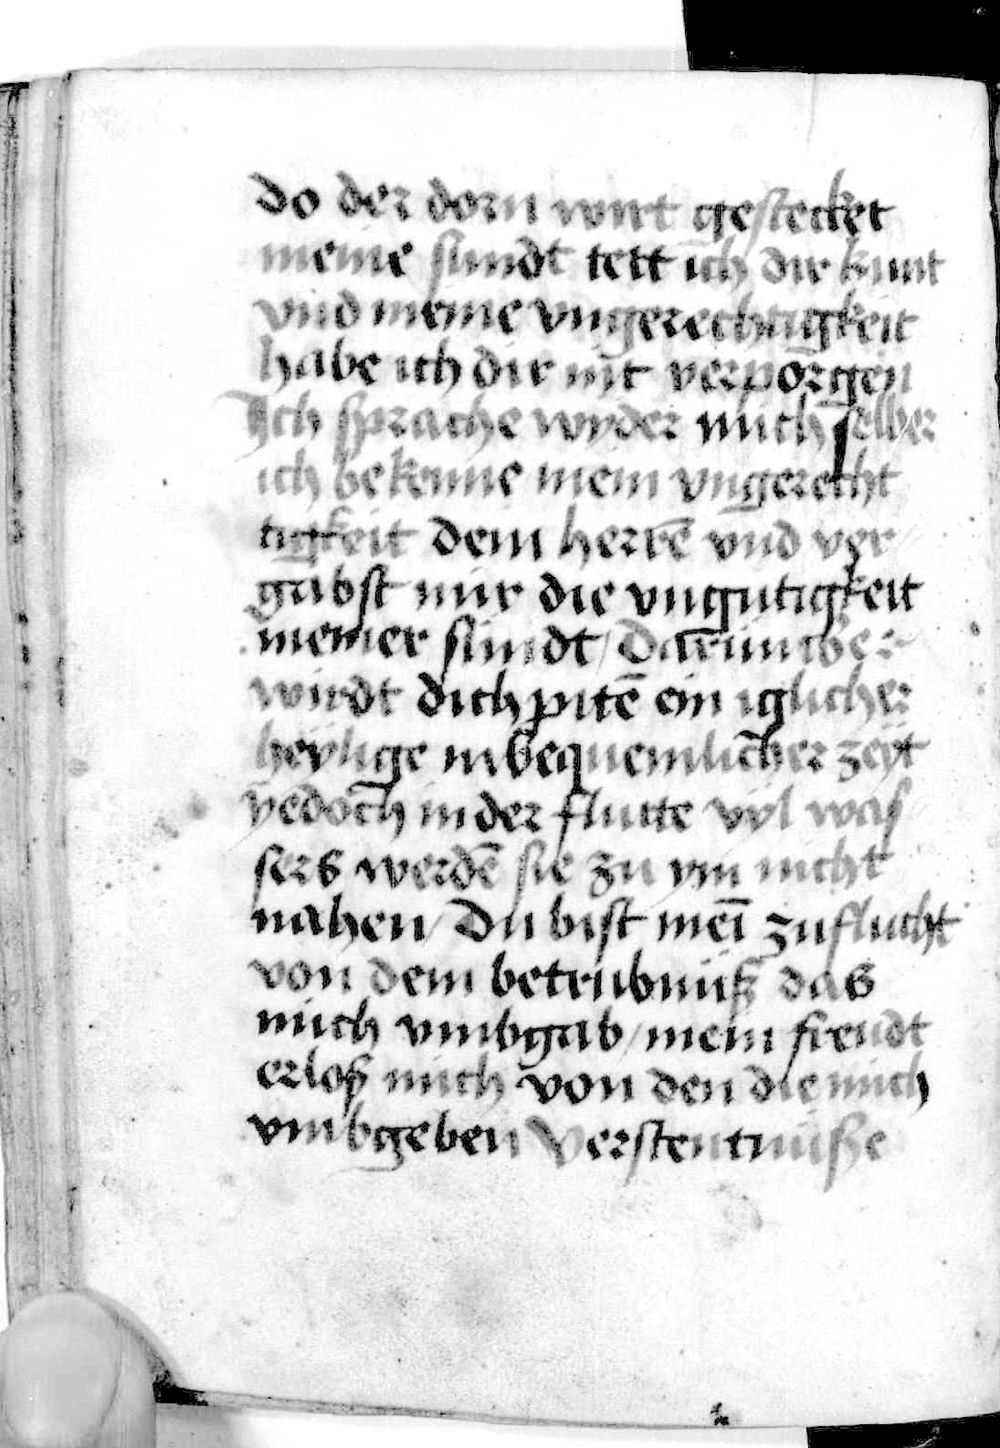 do der dorn wirt gestecket
meine sundt tett ich dir kunt
vnd meine vngerechtigkeit
habe ich dir nit verporgen
Ich sprache wyder mich selber
ich bekenne mein vngerecht
tigkeit dem herrē vnd ver
gabst mir die vngutigkeit
meiner sundt / Darumber
wirdt dich pitē ein iglicher
heylige in bequemlicher zeyt
yedoch in der flutte vyl was
sers werdē sie zu ym nicht
nahen / Du bist meī zuflucht
von dem betrubnuß das
mich vmbgab / mein freudt
erloß mich von den die mich
vmbgeben Verstentnuße